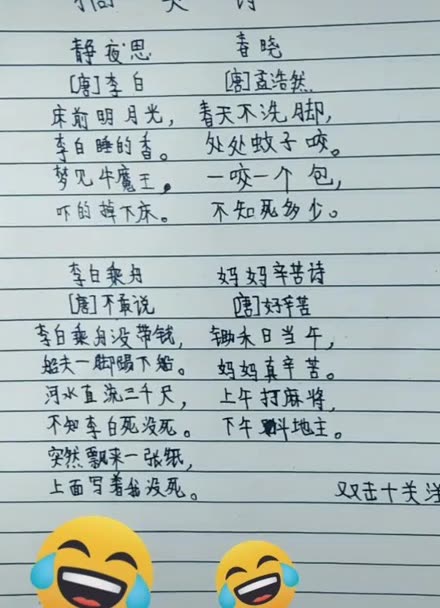 搞笑诗
静夜思
[唐]李白
床前明月光,
李白睡的香。
梦见牛魔王,
吓的掉下床。
春晓
[唐]孟浩然
春天不洗脚,
处处蚊子咬。
一咬一个包,
不知死多少。
李白乘舟
[唐]不敢说
李白乘舟没带钱,
船夫一脚踢下船。
河水直流三千尺,
不知李白死没死。
突然飘来一张纸,
上面写着我没死。
妈妈辛苦诗
[唐]好辛苦
锄禾日当午,
妈妈真辛苦。
上午打麻将,
下午斗地主。
双击十关注